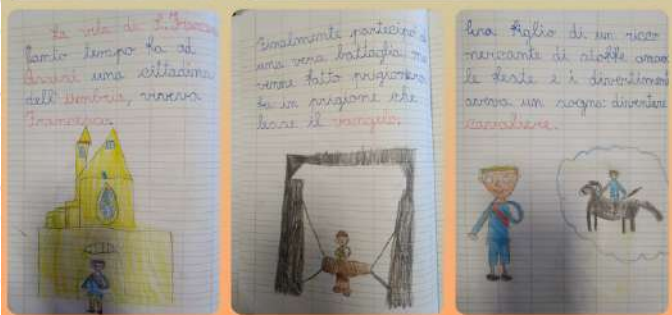 La vita di S. Francesco
Tanto tempo fa ad
Assisi una cittadina
dell'Umbria, viveva
Francesco.
Finalmente partecipò a
una vera battaglia ma
venne fatto prigioniero
fu in prigione che
lesse il vangelo.
Era figlio di un ricco
mercante di stoffe amava
le feste e i divertimenti
aveva un sogno: diventare
cavaliere.